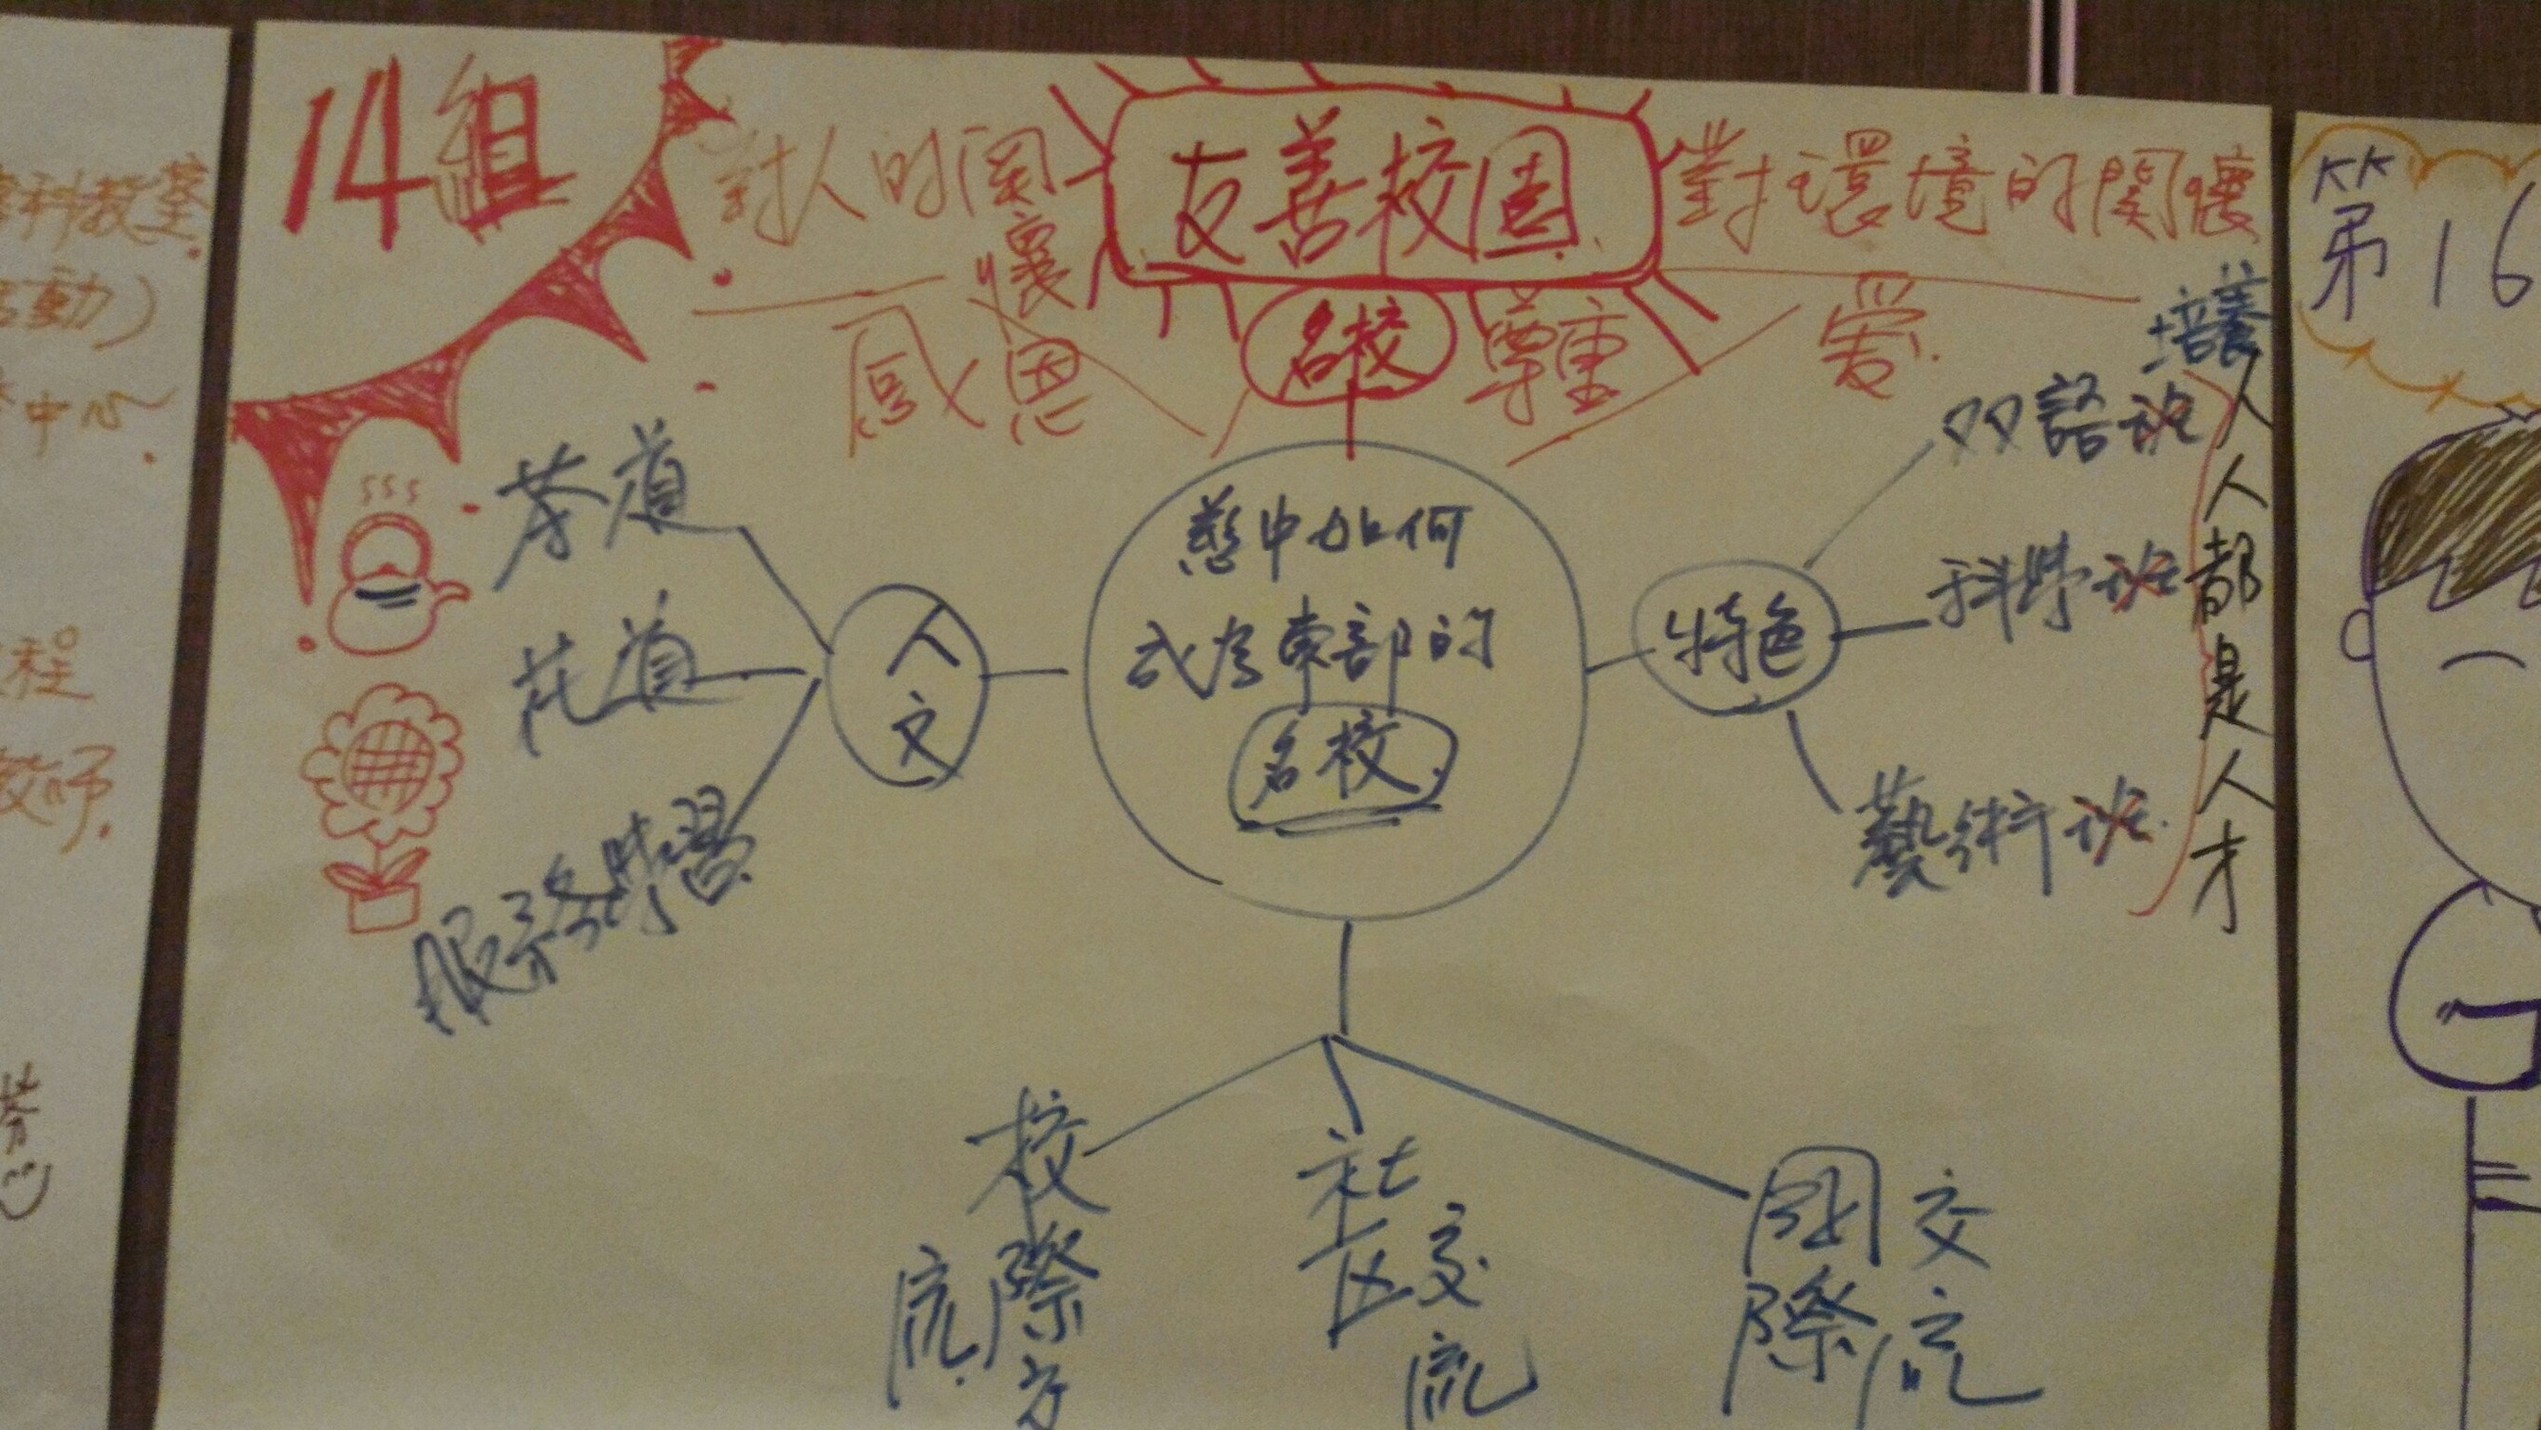 14組
友善校園
對人的関
懷
對環境的関懷
感恩
名校
尊重
愛
慈中如何
成為東部的
名校
人文
茶道
花道
服務學習
特色
双語班
科學班
藝術班
培養人人都是人才
校際交流
社区交流
國際交流
科教室
動)
中心
程
教師
第16